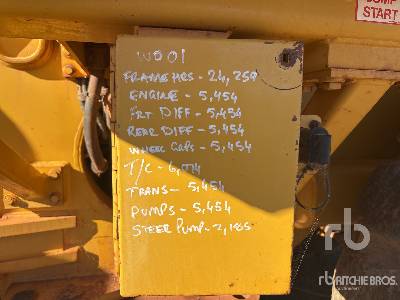 START
WOO1
FRAME HRS - 24,259
ENGINE - 5,454
FRT DIFF - 5,454
REAR DIFF - 5,454
WHEEL - 5,454
T/C -
TRANS - 5,454
PUMPS - 5,454
STEER PUMP - 2,185
rb
RITCHIE BROS.